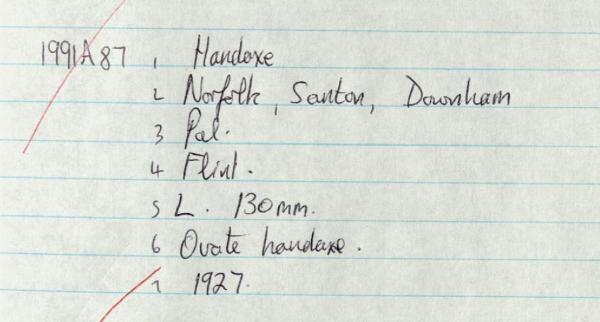 1991A87 1 Handaxe
2 Norfolk, Santon, Downham
3 Pal.
4 Flint.
5 L. 130mm.
6 Ovate handaxe.
7 1927.